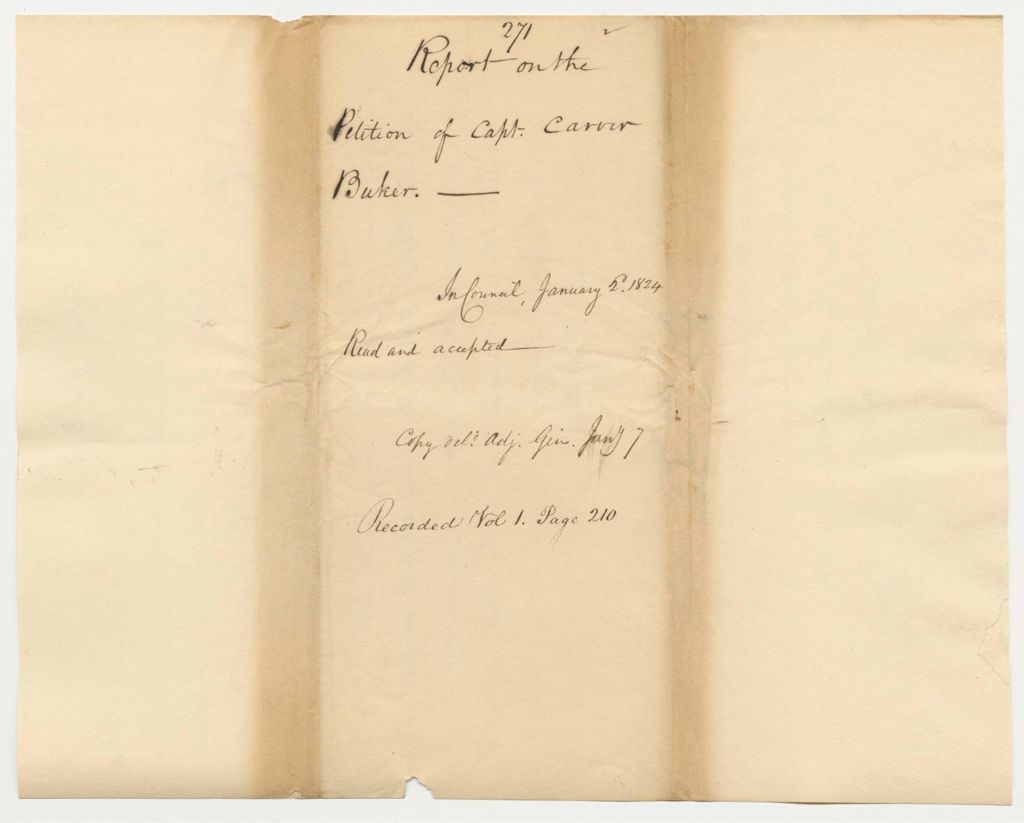 271
Report on the
Petition of Capt. Carver
Baker. —
In Council, January 2d. 1824
Read and accepted —
Copy deld. Adj. Gen. Jany 7
Recorded Vol 1. Page 210